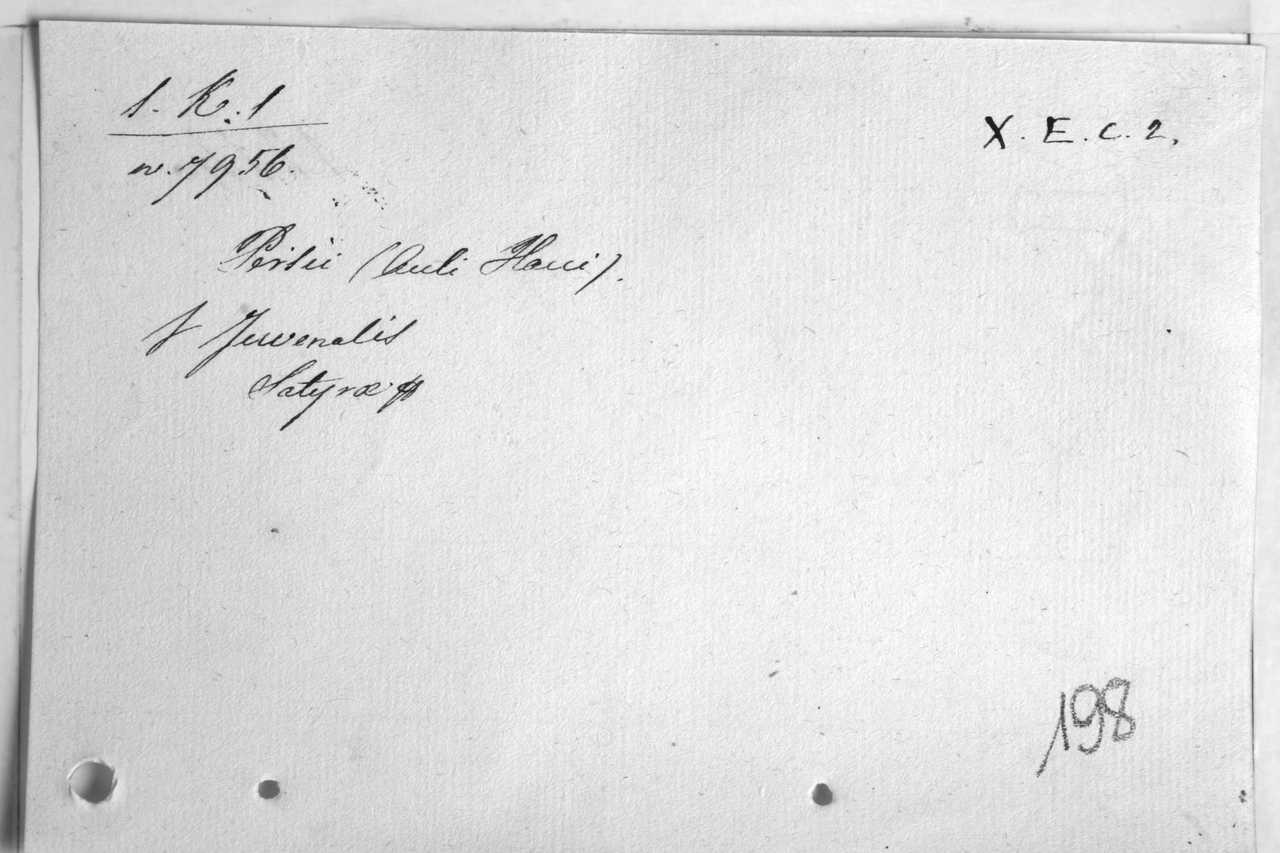 1. K. 1
X. E. C. 2.
n. 7956.
Persii (Auli Flacci).
Juvenalis
Satyræ
198